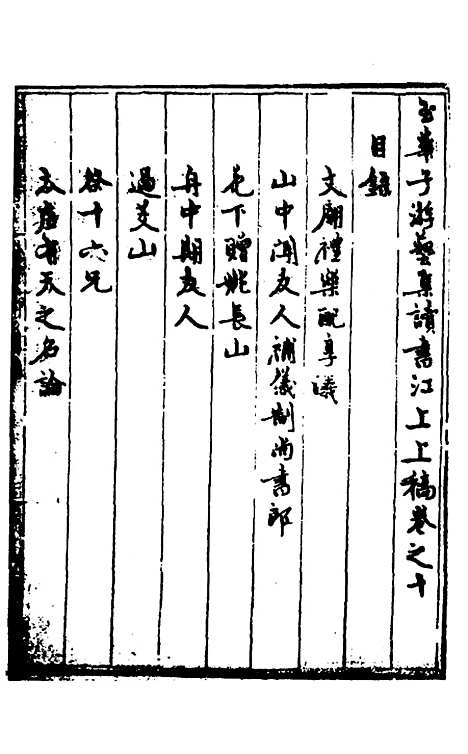 玉華子游藝集讀書江上上稿卷之十
目錄
文廟禮樂配享議
山中聞友人補儀制尚書郎
花下贈姚長山
舟中期友人
過茭山
答十六兄
太虛有天之名論